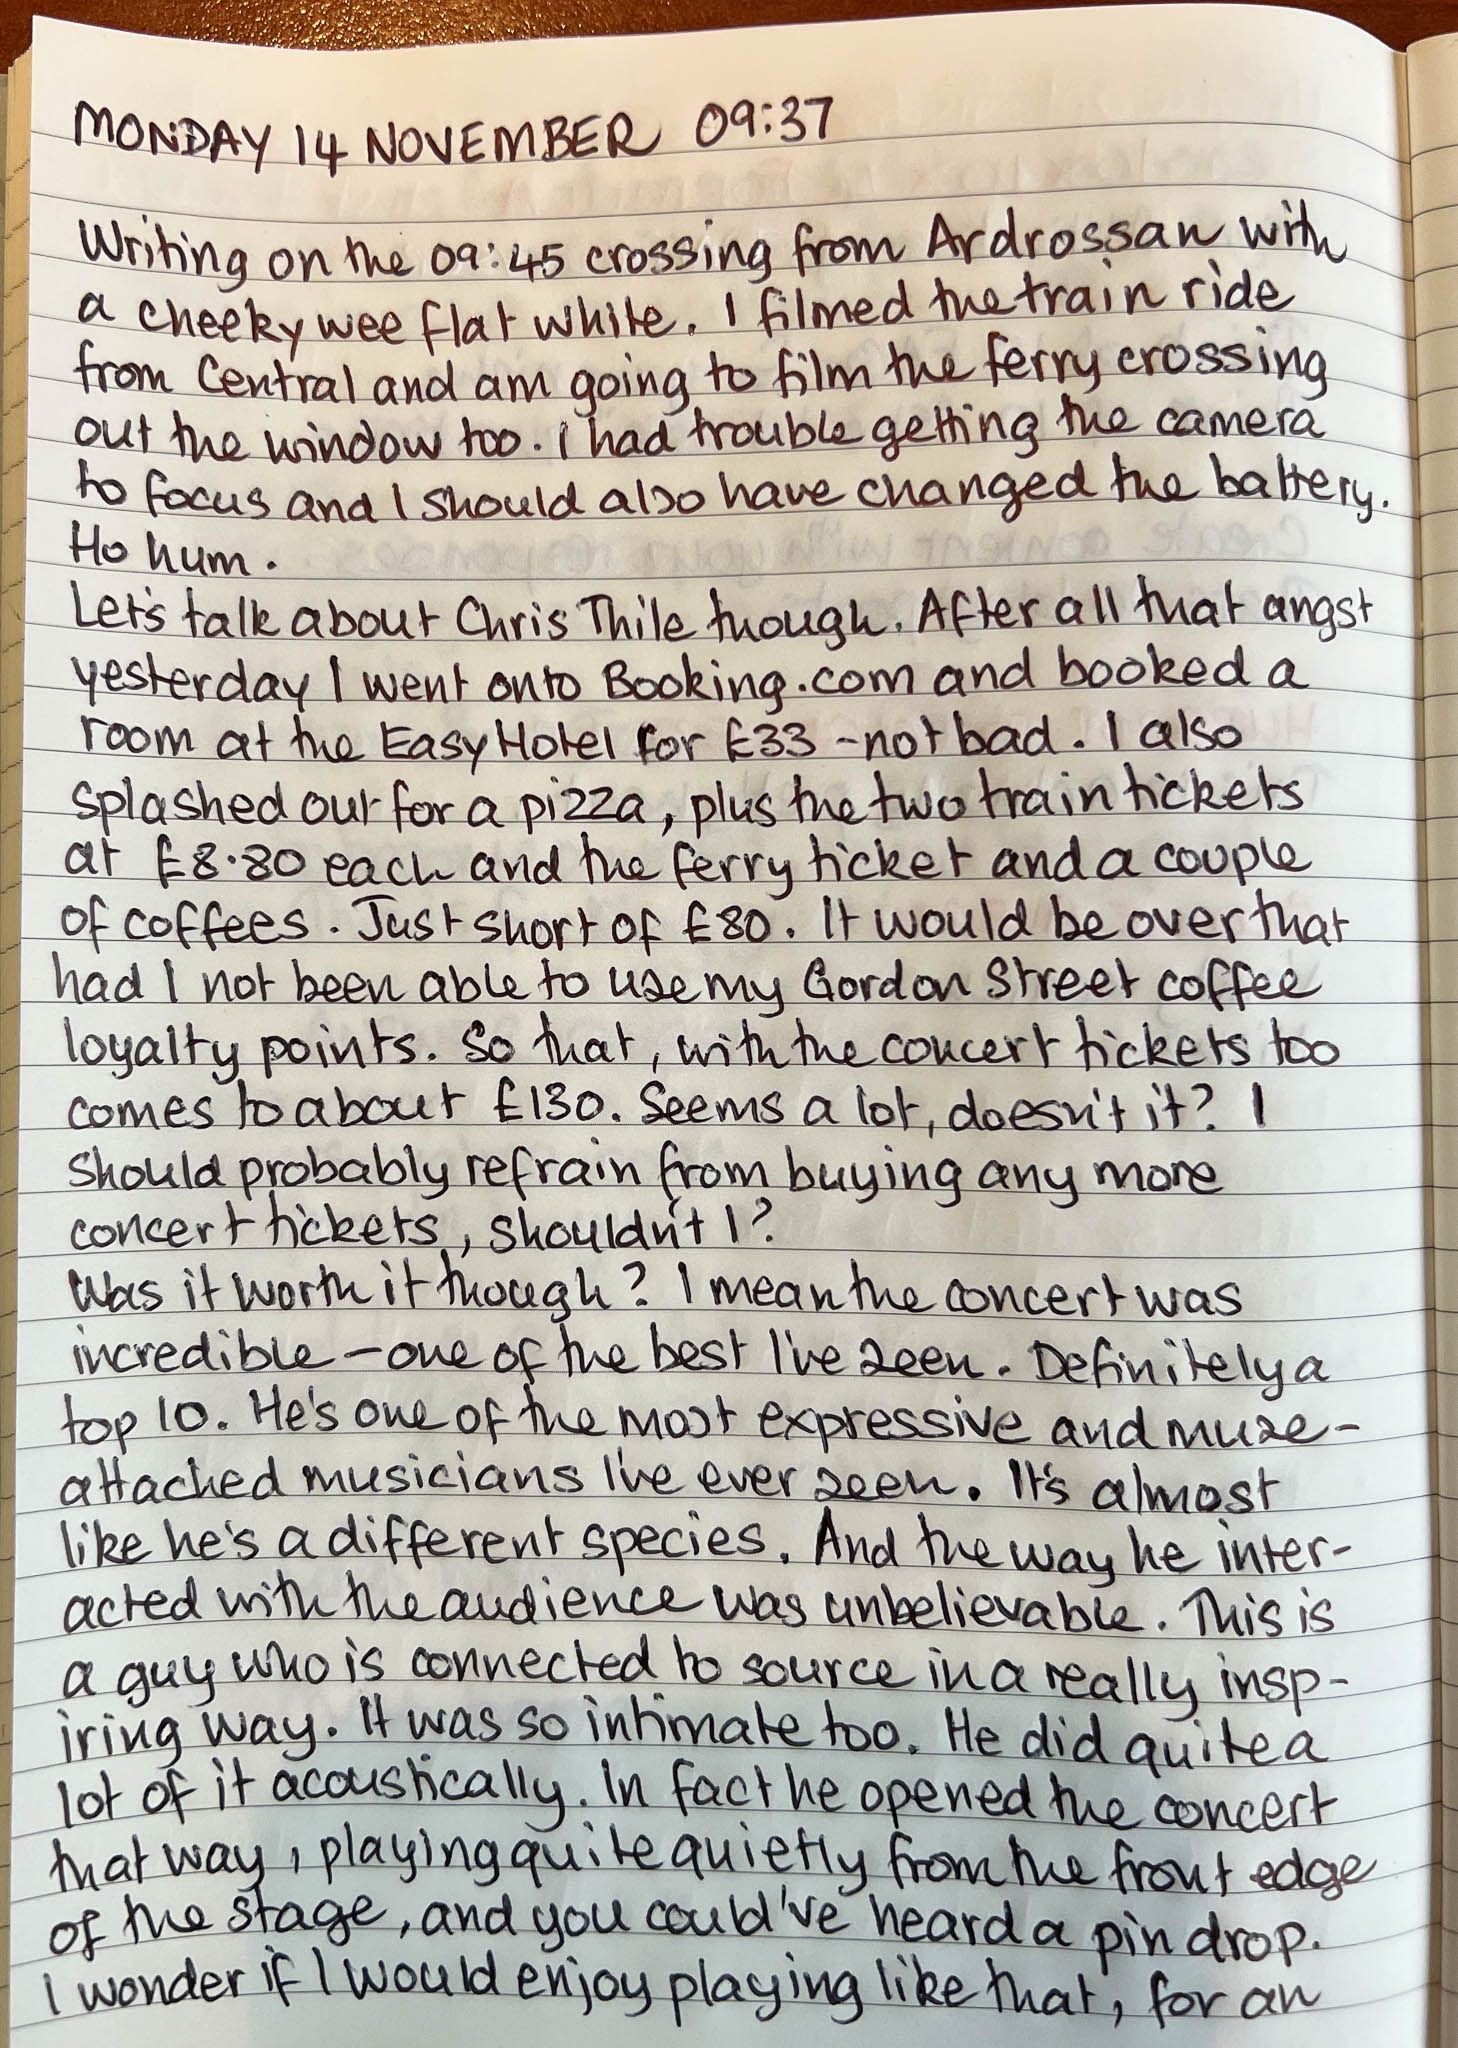 MONDAY 14 NOVEMBER 09:37
Writing on the 09:45 crossing from Ardrossan with
a cheeky wee flat white. I filmed the train ride
from Central and am going to film the ferry crossing
out the window too. I had trouble getting the camera
to focus and I should also have changed the battery.
Ho hum.
Let's talk about Chris Thile though. After all that angst
yesterday I went onto Booking.com and booked a
room at the EasyHotel for £33 - not bad. I also
splashed out for a pizza, plus the two train tickets
at £8.80 each and the ferry ticket and a couple
of coffees. Just short of £80. It would be over that
had I not been able to use my Gordon Street coffee
loyalty points. So that, with the concert tickets too
comes to about £130. Seems a lot, doesn't it? I
should probably refrain from buying any more
concert tickets, shouldn't I?
Was it worth it though? I mean the concert was
incredible - one of the best I've seen. Definitely a
top 10. He's one of the most expressive and muse-
attached musicians I've ever seen. It's almost
like he's a different species. And the way he inter-
acted with the audience was unbelievable. This is
a guy who is connected to source in a really insp-
iring way. It was so intimate too. He did quite a
lot of it acoustically. In fact he opened the concert
that way, playing quite quietly from the front edge
of the stage, and you could've heard a pin drop.
I wonder if I would enjoy playing like that, for an